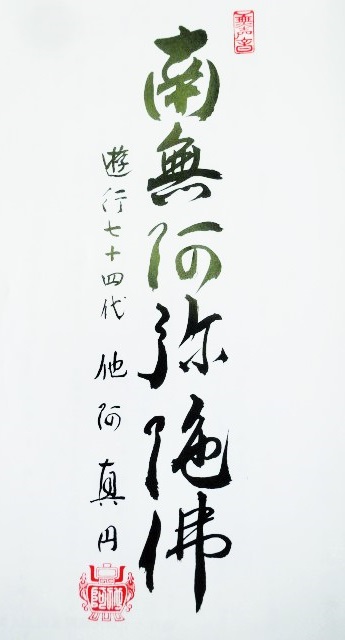 南無阿弥陁佛
遊行七十四代 他阿真円